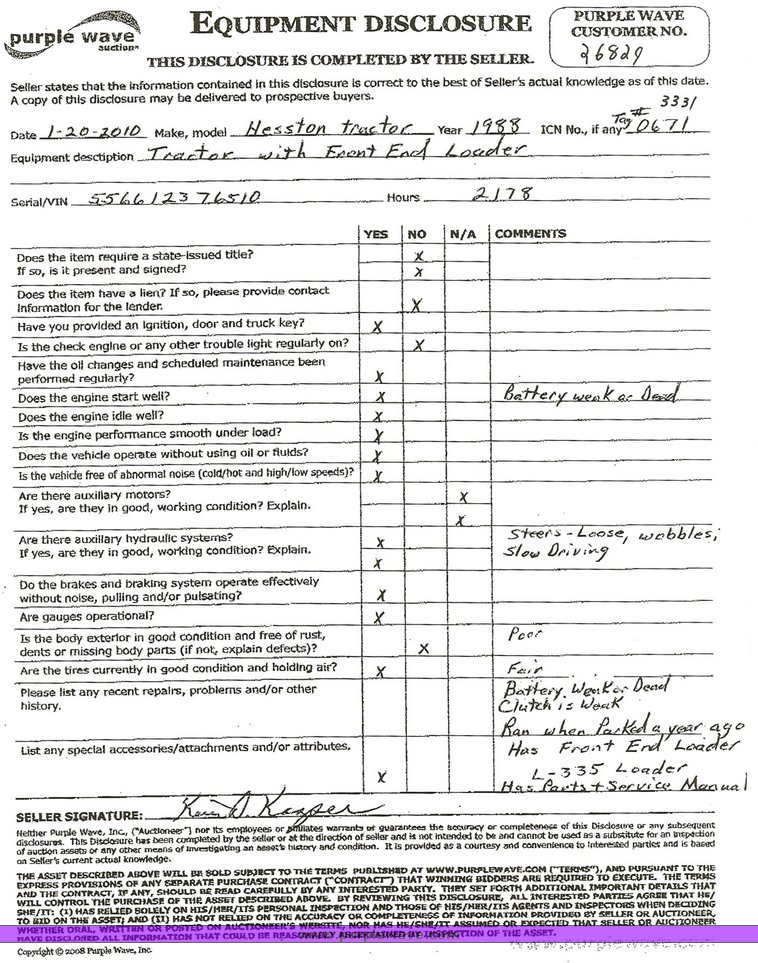 purple wave
auction®
EQUIPMENT DISCLOSURE
PURPLE WAVE
CUSTOMER NO.
26829
THIS DISCLOSURE IS COMPLETED BY THE SELLER.
Seller states that the information contained in this disclosure is correct to the best of Seller's actual knowledge as of this date.
A copy of this disclosure may be delivered to prospective buyers.
3331
Date 1-20-2010 Make, model Hesston tractor Year 1988 ICN No., if any Tag # 0671
Equipment desctiption Tractor with Front End Loader
Serial/VIN 556612376510 Hours 2178
YES NO N/A COMMENTS
Does the item require a state-issued title? X
If so, is it present and signed? X
Does the item have a lien? If so, please provide contact
information for the lender. X
Have you provided an ignition, door and truck key? X
Is the check engine or any other trouble light regularly on? X
Have the oil changes and scheduled maintenance been
performed regularly? X
Does the engine start well? X Battery weak or Dead
Does the engine idle well? X
Is the engine performance smooth under load? X
Does the vehicle operate without using oil or fluids? X
Is the vehicle free of abnormal noise (cold/hot and high/low speeds)? X
Are there auxiliary motors? X
If yes, are they in good, working condition? Explain. X
Are there auxiliary hydraulic systems? X Steers - Loose, wobbles;
If yes, are they in good, working condition? Explain. X Slow Driving
Do the brakes and braking system operate effectively
without noise, pulling and/or pulsating? X
Are gauges operational? X
Is the body exterior in good condition and free of rust, Poor
dents or missing body parts (if not, explain defects)? X
Are the tires currently in good condition and holding air? X Fair
Please list any recent repairs, problems and/or other Battery Weak or Dead
history. Clutch is Weak
Ran when Parked a year ago
List any special accessories/attachments and/or attributes. Has Front End Loader
X L-335 Loader
Has Parts + Service Manual
SELLER SIGNATURE:
Neither Purple Wave, Inc., ("Auctioneer") nor its employees or affiliates warrants or guarantees the accuracy or completeness of this Disclosure or any subsequent
disclosures. This Disclosure has been completed by the seller or at the direction of seller and is not intended to be and cannot be used as a substitute for an inspection
of auction assets or any other means of investigating an asset's history and condition. It is provided as a courtesy and convenience to interested parties and is based
on Seller's current actual knowledge.
THE ASSET DESCRIBED ABOVE WILL BE SOLD SUBJECT TO THE TERMS PUBLISHED AT WWW.PURPLEWAVE.COM ("TERMS"), AND PURSUANT TO THE
EXPRESS PROVISIONS OF ANY SEPARATE PURCHASE CONTRACT ("CONTRACT") THAT WINNING BIDDERS ARE REQUIRED TO EXECUTE. THE TERMS
AND THE CONTRACT, IF ANY, SHOULD BE READ CAREFULLY BY ANY INTERESTED PARTY. THEY SET FORTH ADDITIONAL IMPORTANT DETAILS THAT
WILL CONTROL THE PURCHASE OF THE ASSET DESCRIBED ABOVE. BY REVIEWING THIS DISCLOSURE, ALL INTERESTED PARTIES AGREE THAT HE/
SHE/IT: (I) HAS RELIED SOLELY ON HIS/HER/ITS PERSONAL INSPECTION AND THOSE OF HIS/HER/ITS AGENTS AND INSPECTORS WHEN DECIDING
TO BID ON THE ASSET; AND (II) HAS NOT RELIED ON THE ACCURACY OR COMPLETENESS OF INFORMATION PROVIDED BY SELLER OR AUCTIONEER,
WHETHER ORAL, WRITTEN OR POSTED ON AUCTIONEER'S WEBSITE, NOR HAS HE/SHE/IT ASSUMED OR EXPECTED THAT SELLER OR AUCTIONEER
HAVE DISCLOSED ALL INFORMATION THAT COULD BE REASONABLY ASCERTAINED BY INSPECTION OF THE ASSET.
Copyright © 2008 Purple Wave, Inc. www.purplewave.com